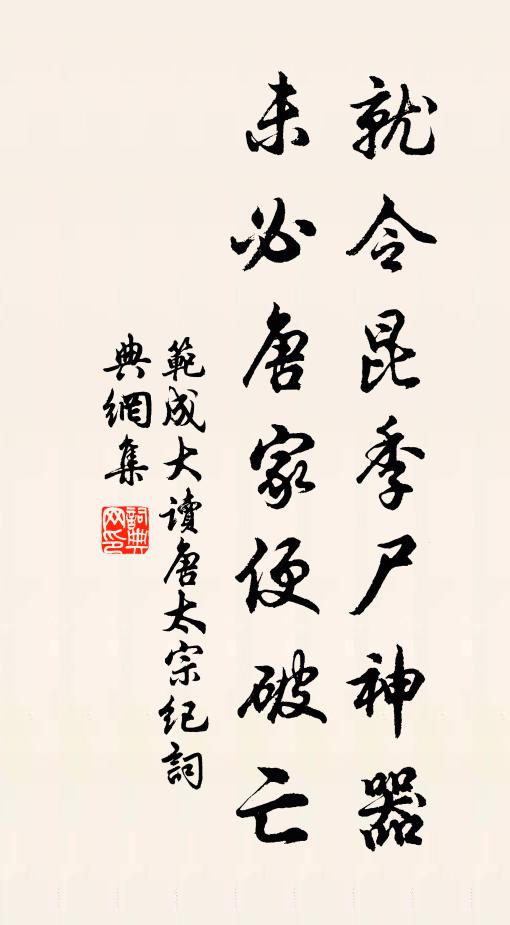 就令昆季尸神器
未必唐家便破亡
範成大讀唐太宗紀詞
典網集
詞典网印